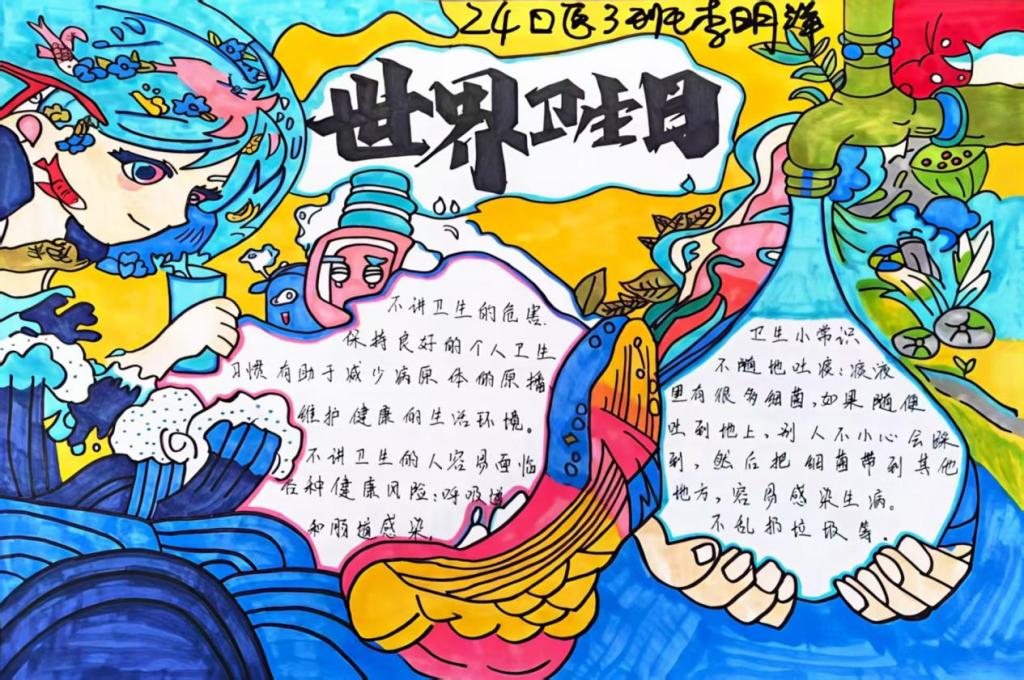 24口医3班李明洋
世界卫生日
不讲卫生的危害.
保持良好的个人卫生
习惯有助于减少病原体的原播
维护健康的生活环境。
不讲卫生的人容易面临
各种健康风险:呼吸道
和肠道感染.
卫生小常识
不随地吐痰:痰液
里有很多细菌,如果随便
吐到地上,别人不小心会踩
到,然后把细菌带到其他
地方,容易感染生病。
不乱扔垃圾等.